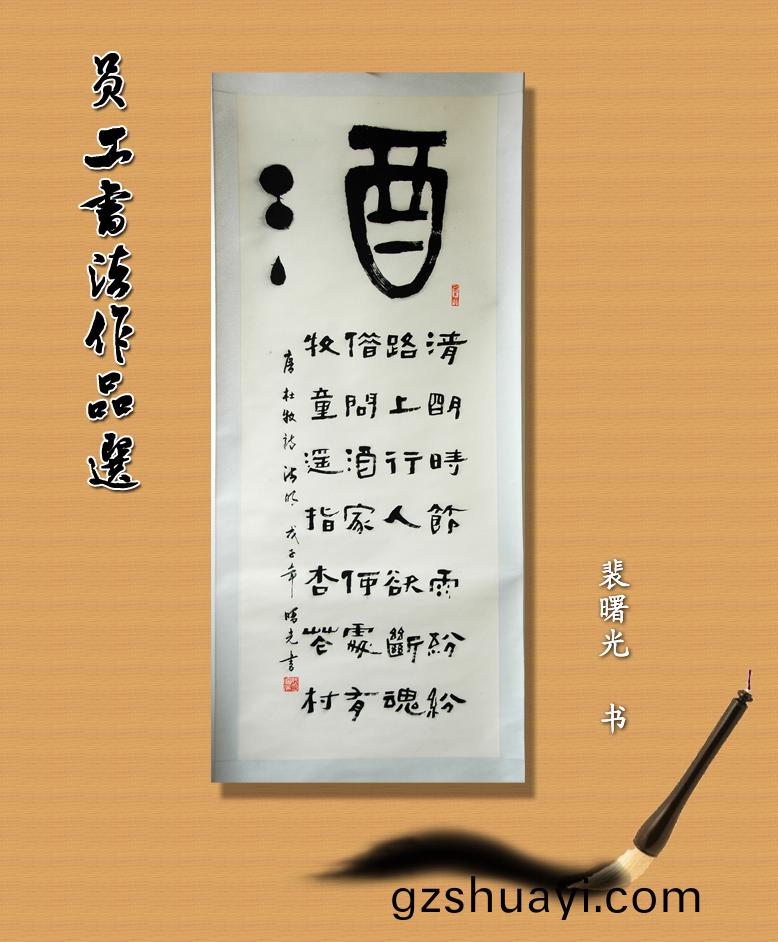 员工書法作品選
酒
清明時節雨紛紛
路上行人欲斷魂
借問酒家何處有
牧童遥指杏花村
唐杜牧詩清明戊子年曙光書
裴曙光 书
gzshuayi.com